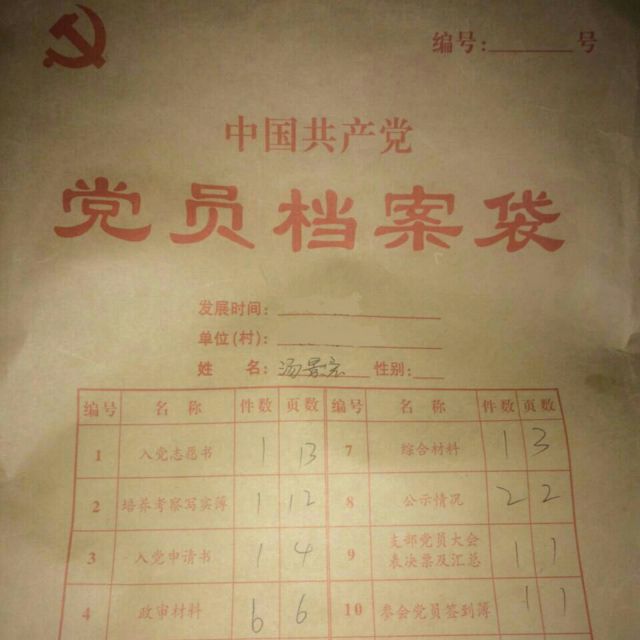 编号:______号
中国共产党
党员档案袋
发展时间:
单位(村):
姓 名:汤景宏 性别:
编号 名 称 件数 页数 编号 名 称 件数 页数
1 入党志愿书 1 13 7 综合材料 1 3
2 培养考察写实簿 1 12 8 公示情况 2 2
3 入党申请书 1 4 9 支部党员大会表决票及汇总 1 1
4 政审材料 6 6 10 参会党员签到簿 1 1